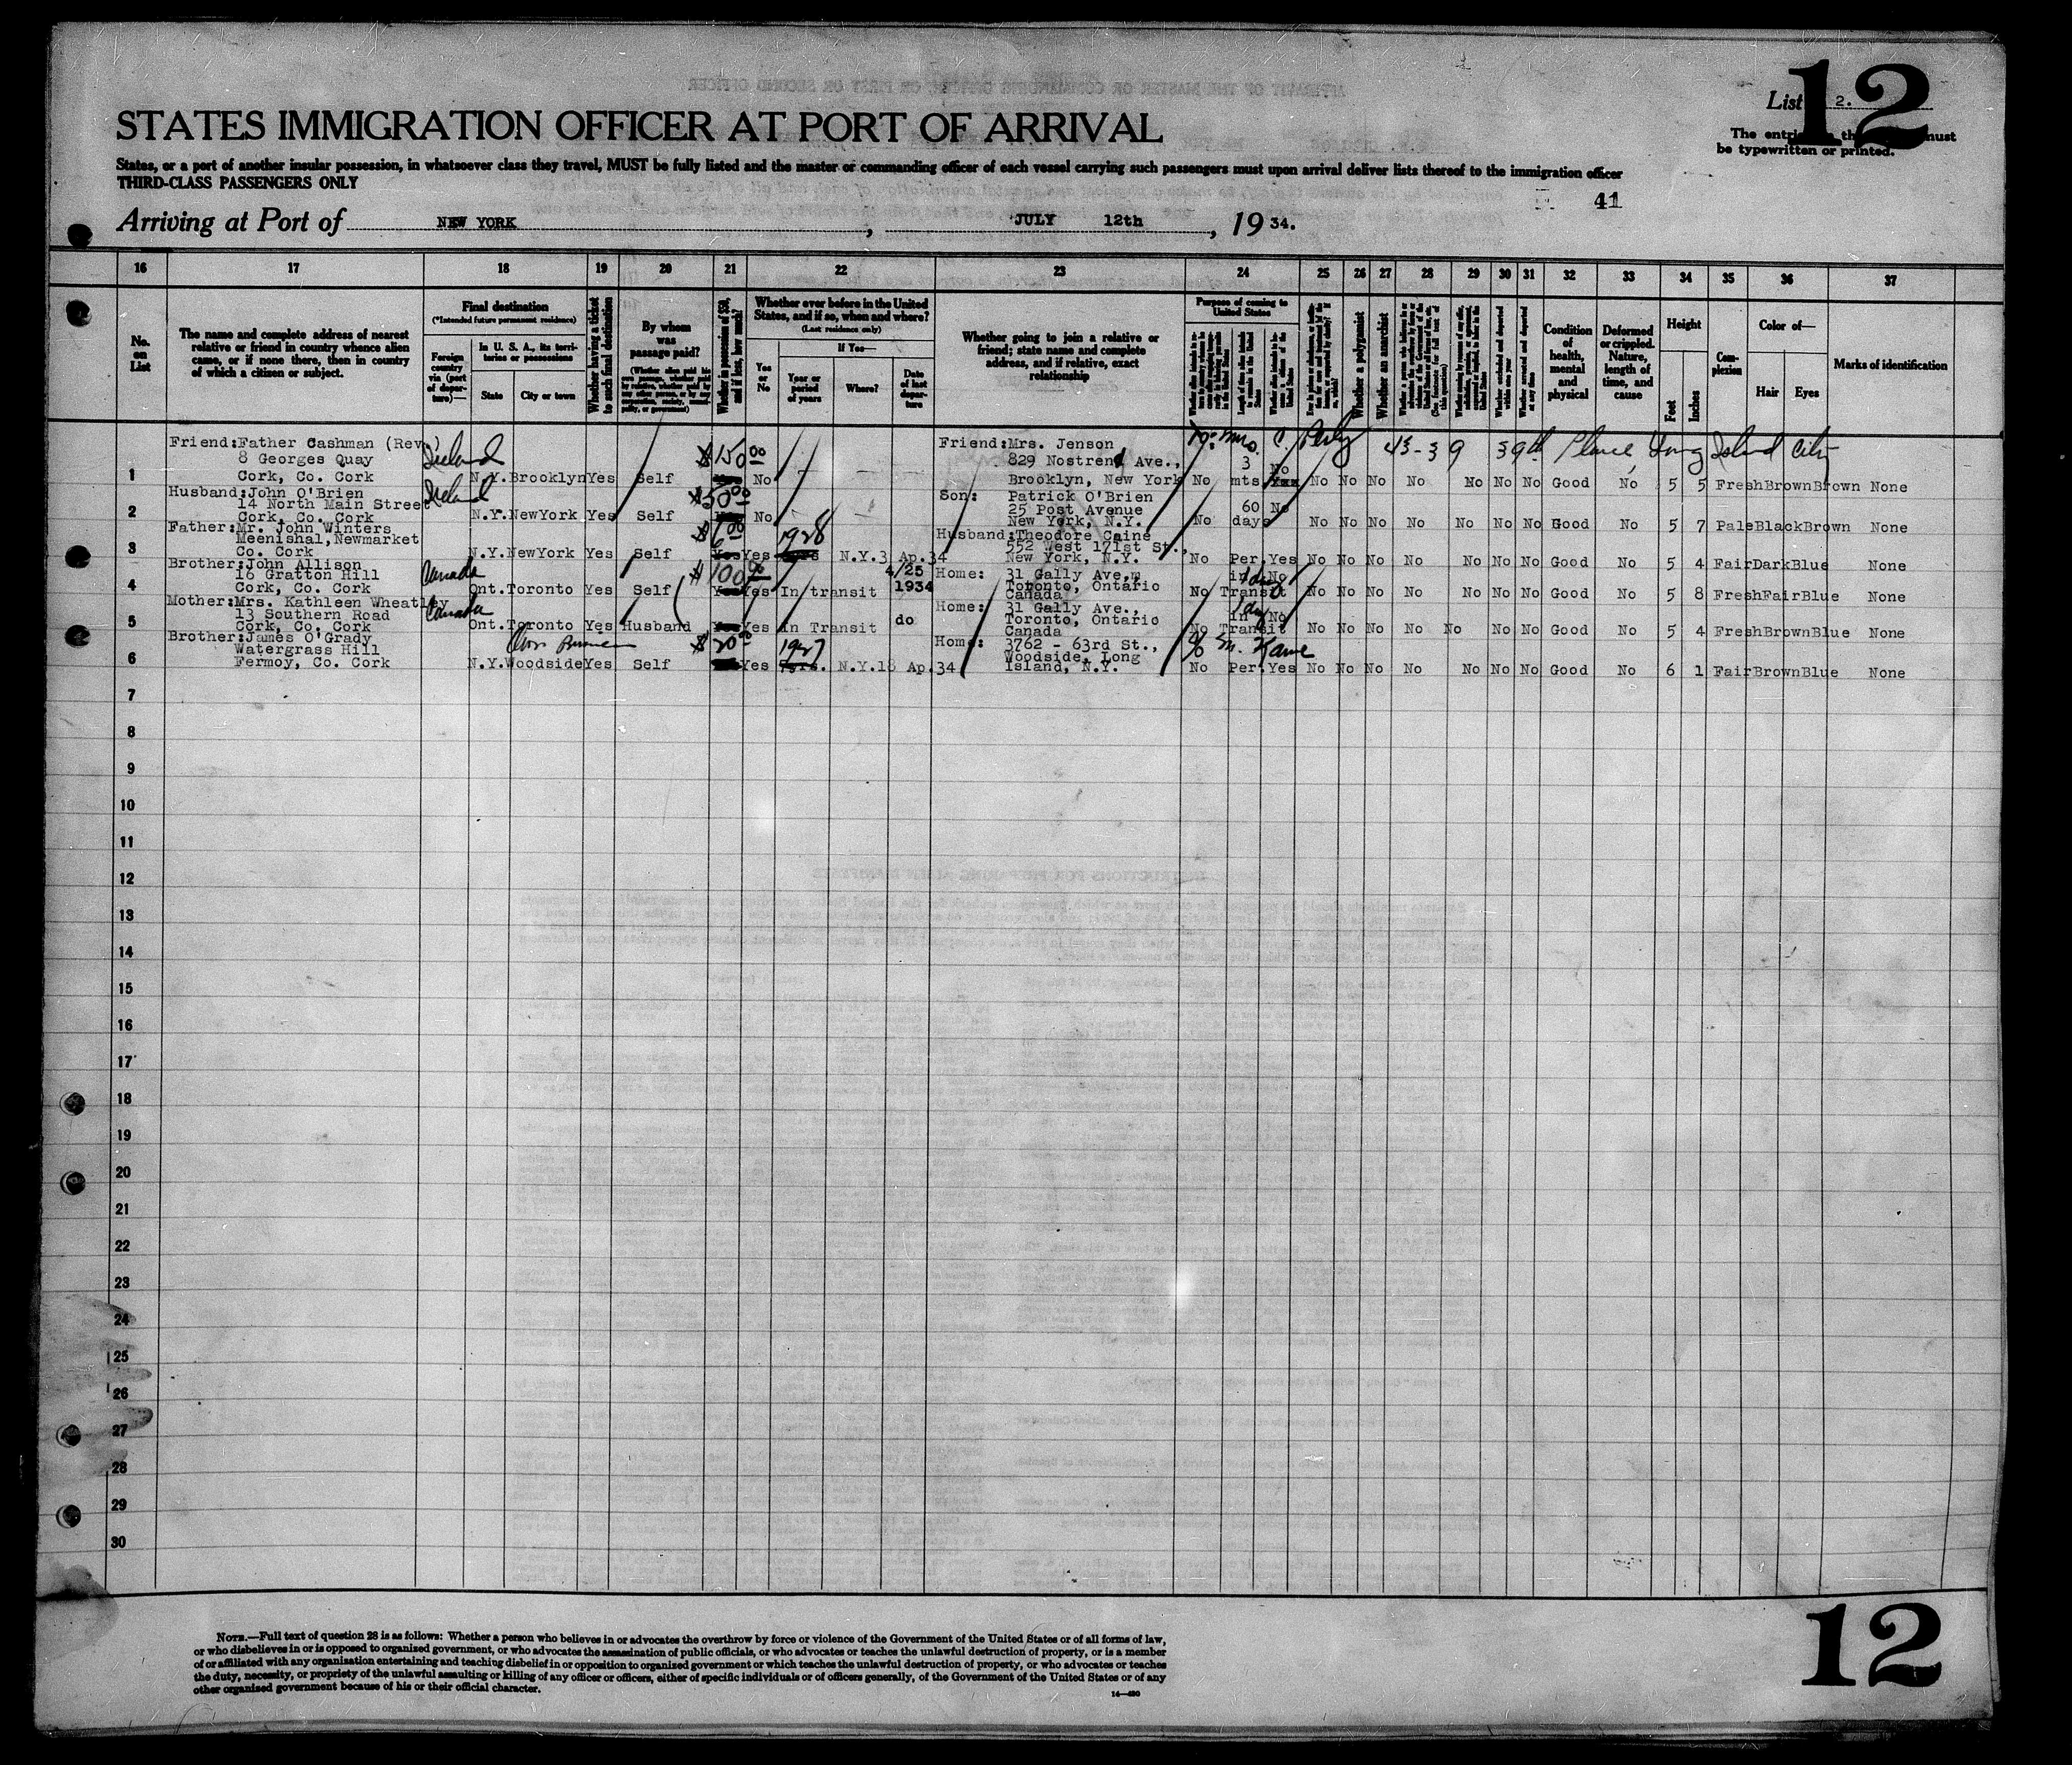 12
List 2.
STATES IMMIGRATION OFFICER AT PORT OF ARRIVAL
The entri must
be typewritten or printed.
States, or a port of another insular possession, in whatsoever class they travel, MUST be fully listed and the master or commanding officer of each vessel carrying such passengers must upon arrival deliver lists thereof to the immigration officer
THIRD-CLASS PASSENGERS ONLY
41
Arriving at Port of NEW YORK, JULY 12th, 1934.
16 17 18 19 20 21 22 23 24 25 26 27 28 29 30 31 32 33 34 35 36 37
No. on List
The name and complete address of nearest relative or friend in country whence alien came, or if none there, then in country of which a citizen or subject.
Final destination
(*Intended future permanent residence)
Foreign country via (port of departure)—
In U. S. A., its territories or possessions
State City or town
Whether having a ticket to such final destination
By whom was passage paid?
Whether in possession of $50, and if less, how much?
Whether ever before in the United States, and if so, when and where?
(Last residence only)
Yes or No
If Yes—
Year or period of years
Where?
Date of last departure
Whether going to join a relative or friend; state name and complete address, and if relative, exact relationship
Purpose of coming to United States
Whether a polygamist
Whether an anarchist
Condition of health, mental and physical
Deformed or crippled. Nature, length of time, and cause
Height
Feet Inches
Complexion
Color of—
Hair Eyes
Marks of identification
Friend:Father Cashman (Rev.) Ireland $150.00 Friend:Mrs. Jenson 43-39 39th Place Long Island City
8 Georges Quay 829 Nostrend Ave., 3 No
1 Cork, Co. Cork N.Y. Brooklyn Yes Self No Brooklyn, New York No mts No No No No No No No Good No 5 5 Fresh Brown Brown None
Husband:John O'Brien Ireland $50.00 Son: Patrick O'Brien
14 North Main Street 25 Post Avenue 60 No
2 Cork, Co. Cork N.Y. NewYork Yes Self No New York, N.Y. No days No No No No No No No Good No 5 7 Pale Black Brown None
Father:Mr. John Winters $6.00 1928 Husband:Theodore Caine
Meenishal, Newmarket 552 West 171st St.,
3 Co. Cork N.Y. NewYork Yes Self Yes Yes N.Y. 3 Ap.34 New York, N.Y. No Per. Yes No No No No No No No Good No 5 4 Fair Dark Blue None
Brother:John Allison Canada $100 4/25
16 Gratton Hill Home: 31 Gally Ave., in 1 day No
4 Cork, Co. Cork Ont. Toronto Yes Self Yes Yes In transit 1934 Toronto, Ontario Canada No Transit No No No No No No No Good No 5 8 Fresh Fair Blue None
Mother:Mrs. Kathleen Wheatley Canada Home: 31 Gally Ave., 1 day
13 Southern Road do Toronto, Ontario in No
5 Cork, Co. Cork Ont. Toronto Yes Husband Yes Yes In Transit Canada No Transit No No No No No No No Good No 5 4 Fresh Brown Blue None
Brother:James O'Grady $20.00 1927 Home: 3762 - 63rd St., % M. Kane
Watergrass Hill Woodside, Long
6 Fermoy, Co. Cork N.Y. Woodside Yes Self Yes N.Y. 18 Ap.34 Island, N.Y. No Per. Yes No No No No No No No Good No 6 1 Fair Brown Blue None
7
8
9
10
11
12
13
14
15
16
17
18
19
20
21
22
23
24
25
26
27
28
29
30
NOTE.—Full text of question 28 is as follows: Whether a person who believes in or advocates the overthrow by force or violence of the Government of the United States or of all forms of law,
or who disbelieves in or is opposed to organized government, or who advocates the assassination of public officials, or who advocates or teaches the unlawful destruction of property, or is a member
of or affiliated with any organization entertaining and teaching disbelief in or opposition to organized government or which teaches the unlawful destruction of property, or who advocates or teaches
the duty, necessity, or propriety of the unlawful assaulting or killing of any officer or officers, either of specific individuals or of officers generally, of the Government of the United States or of any
other organized government because of his or their official character.
14—480
12